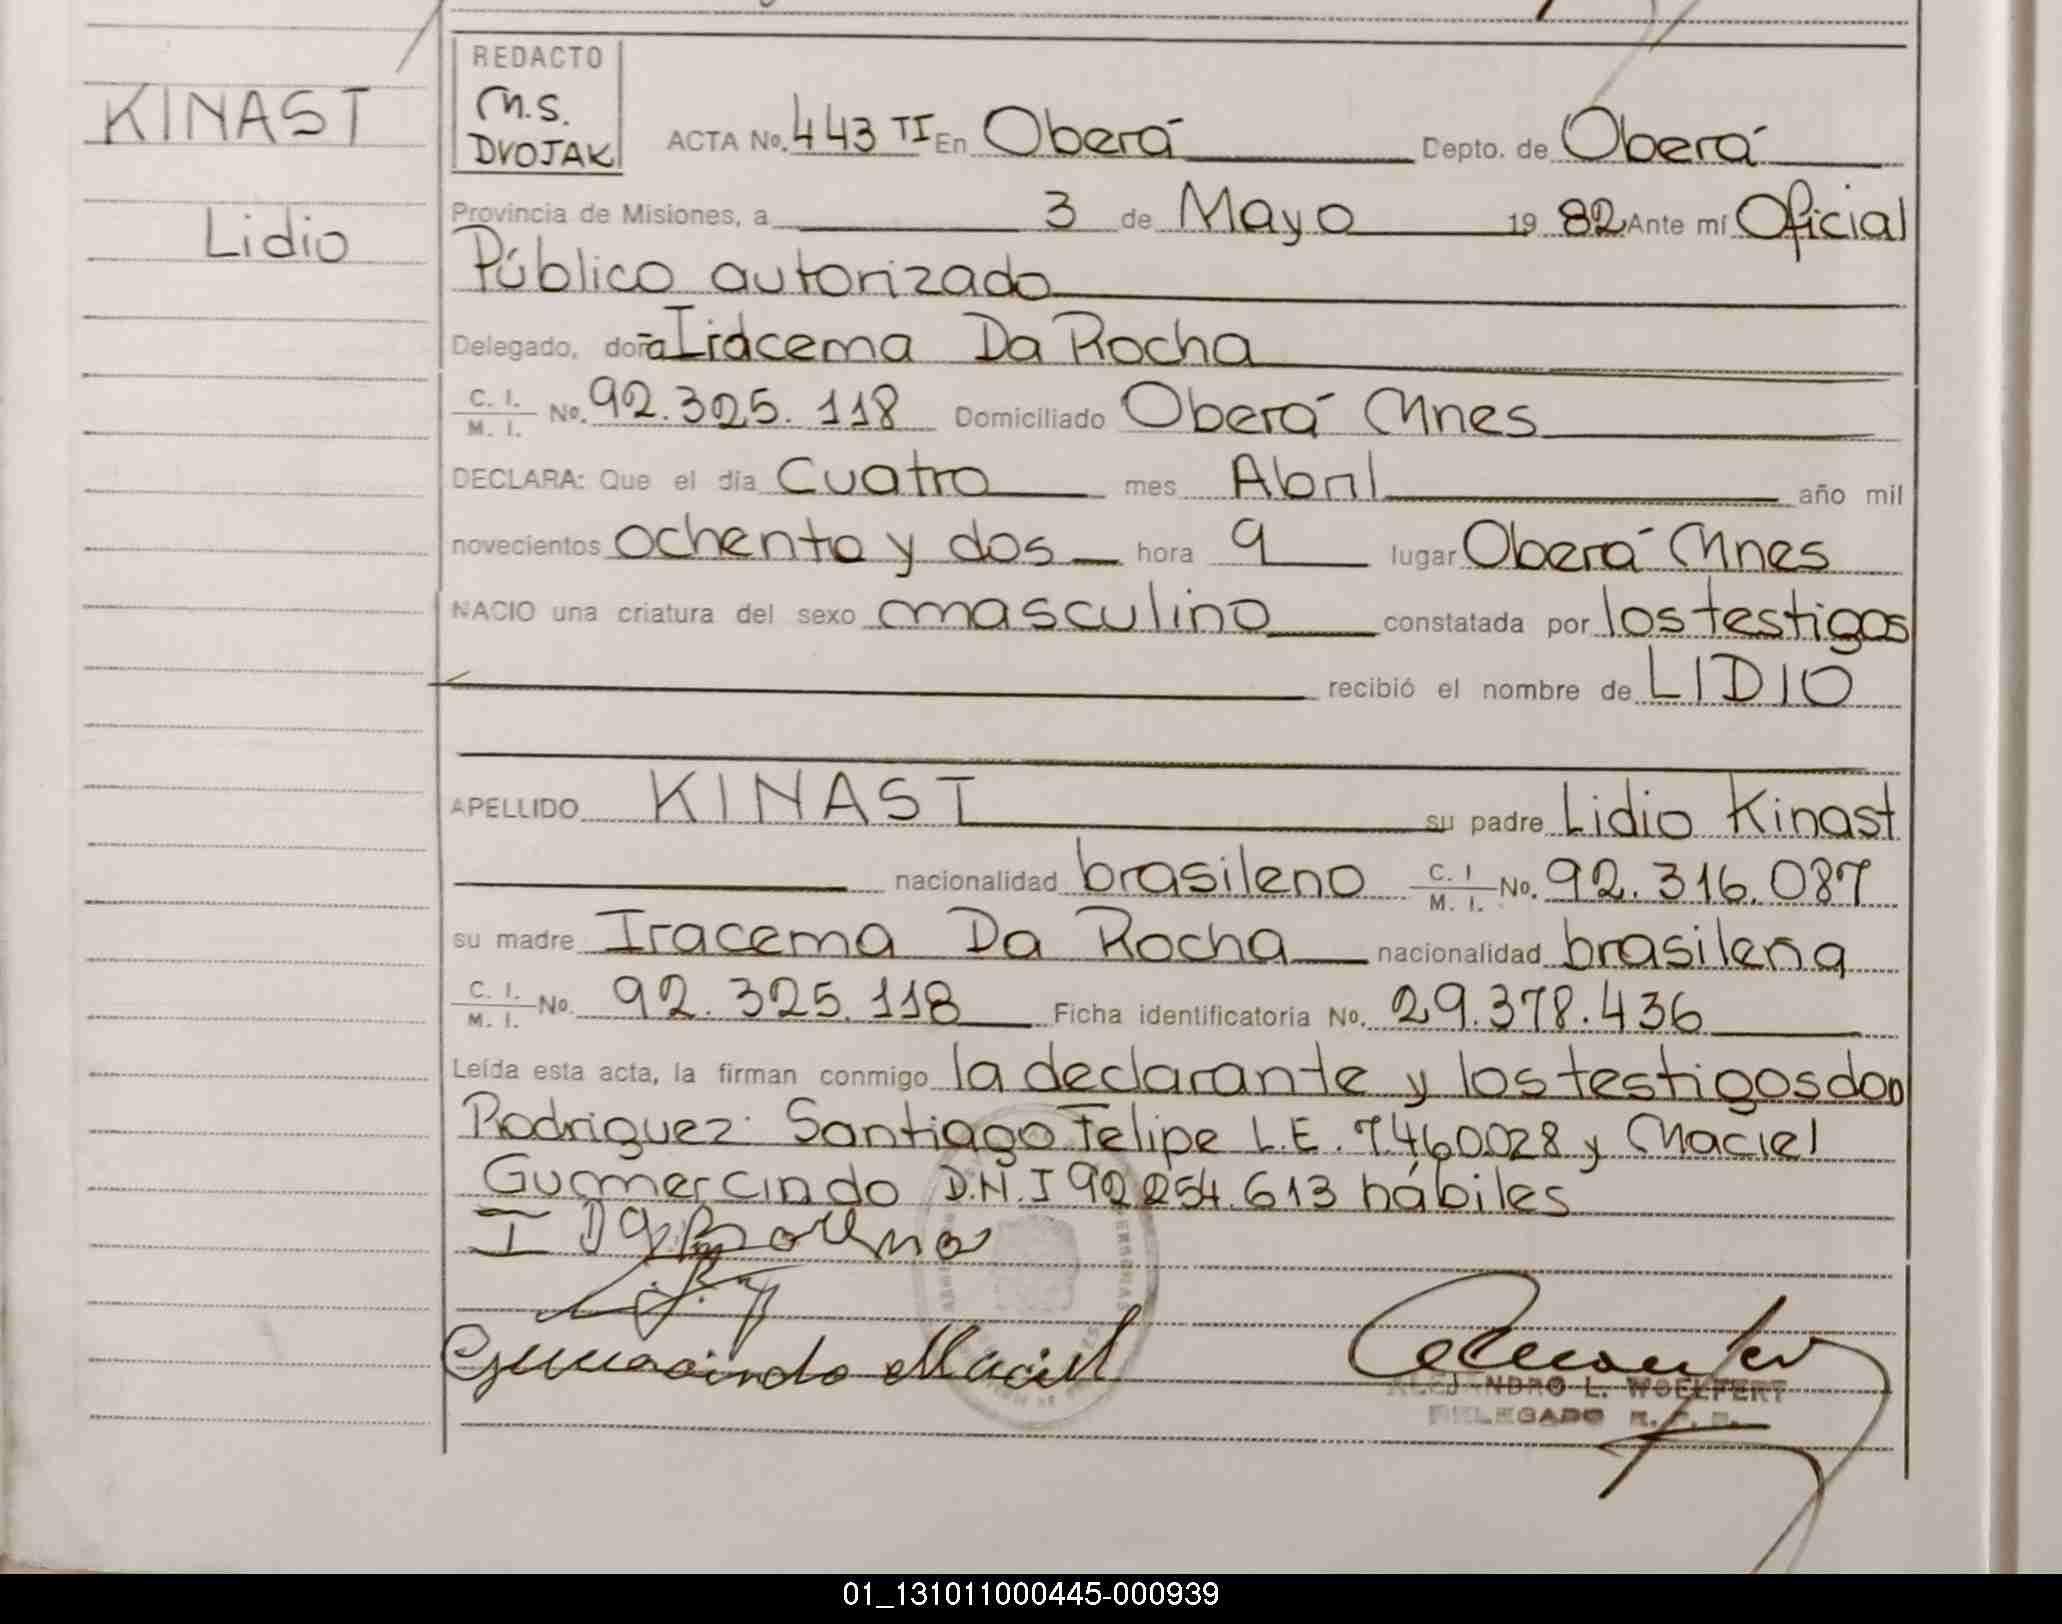 KINAST
Lidio
REDACTO
M.S.
DVOJAK
ACTA No. 443 TI En Oberá Depto. de Oberá
Provincia de Misiones, a 3 de Mayo 1982 Ante mí Oficial
Público autorizado
Delegado, doña Iracema Da Rocha
C. I. / M. I. No. 92.325.118 Domiciliado Oberá Mnes
DECLARA: Que el día Cuatro mes Abril año mil
novecientos ochenta y dos hora 9 lugar Oberá Mnes
NACIO una criatura del sexo masculino constatada por los testigos
recibió el nombre de LIDIO
APELLIDO KINAST su padre Lidio Kinast
nacionalidad brasileno C. I / M. I. No. 92.316.087
su madre Iracema Da Rocha nacionalidad brasilena
C. I. / M. I. No. 92.325.118 Ficha identificatoria No. 29.378.436
Leída esta acta, la firman conmigo la declarante y los testigos don
Rodriguez Santiago Felipe L.E. 7.460.028 y Maciel
Gumercindo D.N.I 92.254.613 hábiles
Gumercindo Maciel
ALEJANDRO L. WOELFERT
DELEGADO R. P. P.
01_131011000445-000939